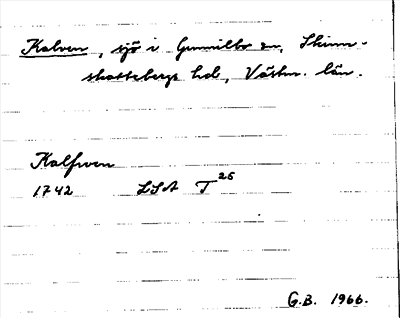 Kalven, sjö i Gunnilbo sn, Skinn-
skattebergs hd, Västm. län.
Kalfwen
1742 LSA T 26
G.B. 1966.